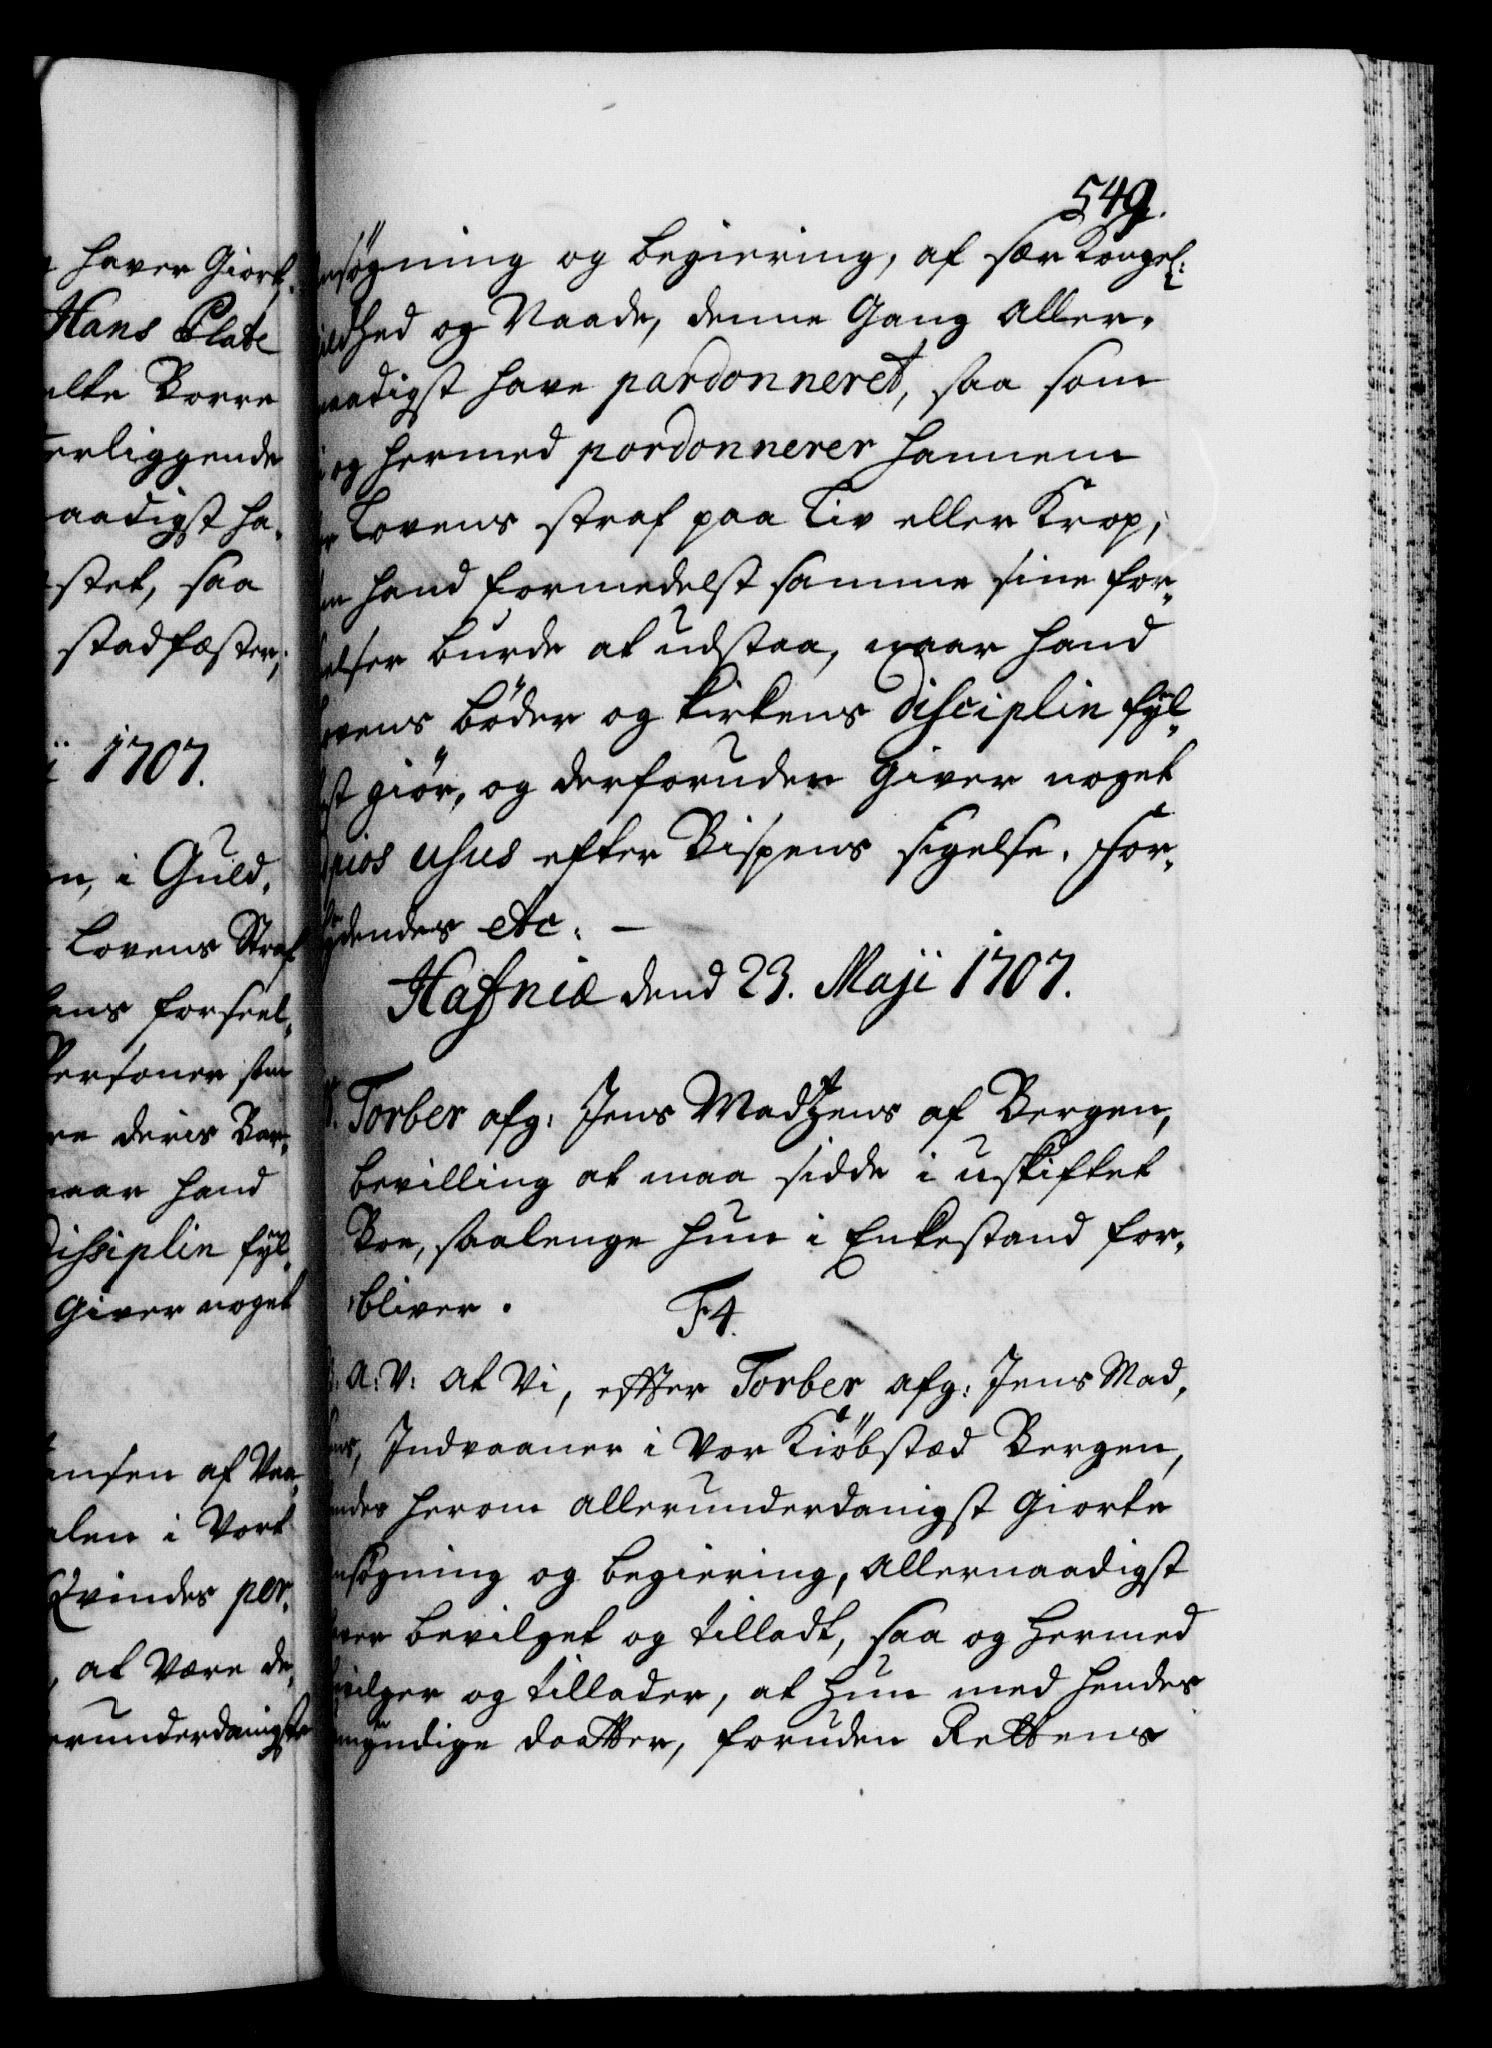 haver Giort
Hans Plate
Borre
erliggende
aadigst ha-
stet, saa
stadfæster,
1707.
i Guld-
Lovens Straf
ens forseel-
Personer som
deris Bør-
naar hand
Dissiplin fyl-
Giver noget
ensen af
alen i Vort
Qvindes per-
at være de-
erunderdanigste
549.
nsøgning og begiering, af sær Kongel:
ildhed og Naade, denne Gang Aller-
naadigst have pardonneret, saa som
og hermed pordonnerer hannem
Lovens straf paa Liv eller Krop,
hand formedelst samme sine for-
elser burde at udstaa, naar hand
ovens bøder og kirkens disciplin fyl-
st giør, og derforuden Giver noget
pios usus efter Bispens sigelse. For-
ydendes etc. —
Hafniæ dend 23. Maji 1707.
Torber afg: Jens Madtzens af Bergen,
bevilling at maa sidde i uskiftet
Boe, saalenge hun i Enkestand for-
bliver.
F4.
G: A: V: At Vi, effter Torber afg: Jens Mad-
ens, Indvaaner i Vor Kiøbstæd Bergen,
endes herom allerunderdanigst Giorte
nsøgning og begiering, Allernaadigst
haver bevilget og tilladt, saa og hermed
bevilger og tillader, at hun med hendes
myndige daatter, foruden Rettens